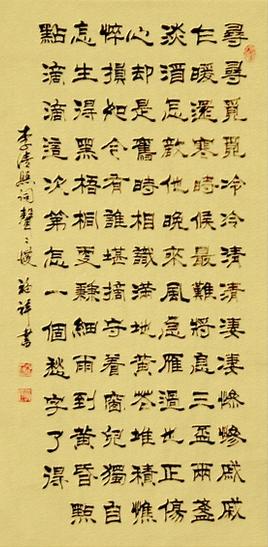 尋尋覓覓冷冷清清淒淒慘慘戚戚
乍暖還寒時候最難將息三盃兩盞
淡酒怎敵他晚來風急雁過也正傷
心卻是舊時相識滿地黃花堆積憔
悴損如今有誰堪摘守著窗兒獨自
怎生得黑梧桐更兼細雨到黃昏點
點滴滴這次第怎一個愁字了得
李清照詞聲〻慢 祥書